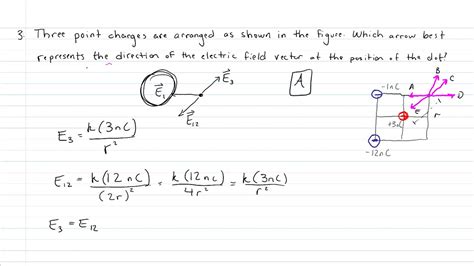 3. Three point changes are arranged as shown in the figure. Which arrow best
represents the direction of the electric field vector at the position of the dot?
E₁
E₃
E₁₂
A
-1nC
A
B
C
D
e
r
+3nC
r
-12nC
E₃ = k(3nC) / r²
E₁₂ = k(12 nC) / (2r)² = k(12nC) / 4r² = k(3nC) / r²
E₃ = E₁₂